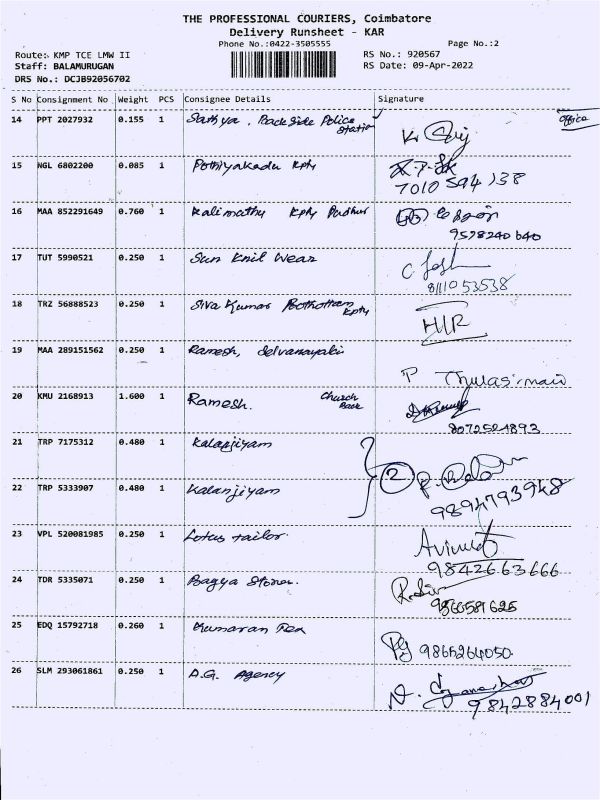 THE PROFESSIONAL COURIERS, Coimbatore
Delivery Runsheet - KAR
Phone No.:0422-3505555 Page No.:2
Route: KMP TCE LMW II RS No.: 920567
Staff: BALAMURUGAN RS Date: 09-Apr-2022
DRS No.: DCJB92056702
S No Consignment No Weight PCS Consignee Details Signature
14 PPT 2027932 0.155 1 Sathya, Back Side Police Station office
15 NGL 6802200 0.085 1 Pothiyakadu kpty
7010594138
16 MAA 852291649 0.760 1 Kalimuthu kpty Pudhur
9578240640
17 TUT 5990521 0.250 1 Sun Knit Wear
8111053538
18 TRZ 56888523 0.250 1 Siva Kumar Kpty
H/R
19 MAA 289151562 0.250 1 Ramesh, Selvanayaki
P Thulasimani
20 KMU 2168913 1.600 1 Ramesh. Church Back
8072521893
21 TRP 7175312 0.480 1 Kalanjiyam
2
22 TRP 5333907 0.480 1 Kalanjiyam
9894793948
23 VPL 520081985 0.250 1 Lotus tailor
9842663666
24 TDR 5335071 0.250 1 Bagya Stores.
9566581625
25 EDQ 15792718 0.260 1 Kumaran Tex
9865264050.
26 SLM 293061861 0.250 1 A.G. Agency
9842884001